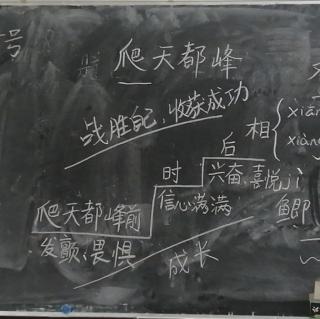 号
爬天都峰
战胜自己,收获成功
相{xiāng
xiàng
后
时
兴奋、喜悦jì
信心满满
鲫
爬天都峰前
发颤、畏惧
成长